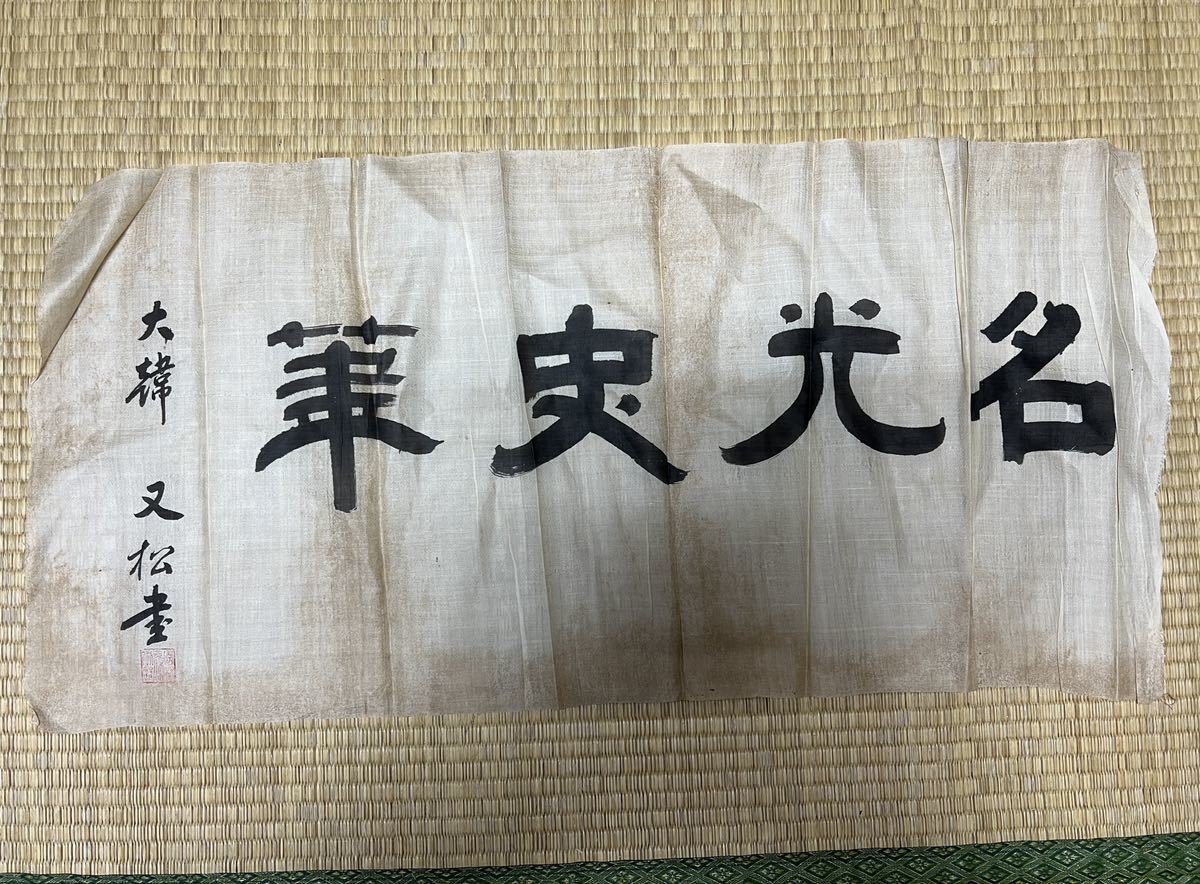 名光史筆
大韓 又松書